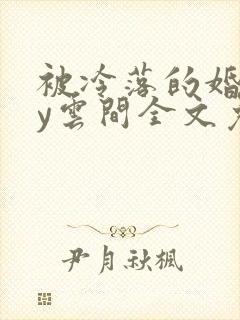 被冷落的婚
y雲間全文
尹月秋楓